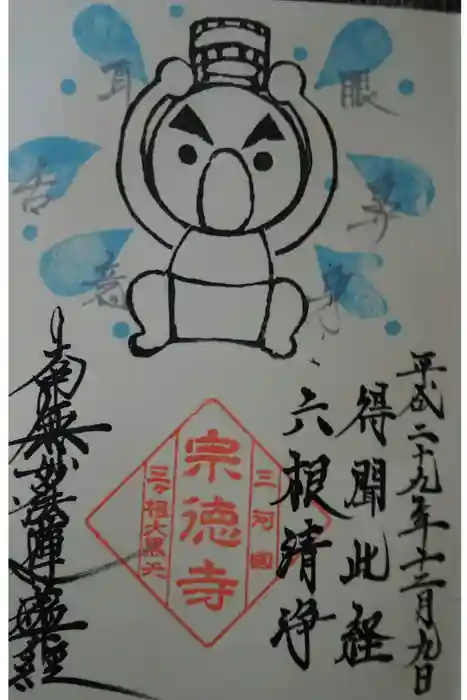 眼
耳
鼻
舌
身
意
平成二十九年十二月九日
得聞此経
六根清浄
三河国
宗徳寺
三ヶ根大黒天
南無妙法蓮華経